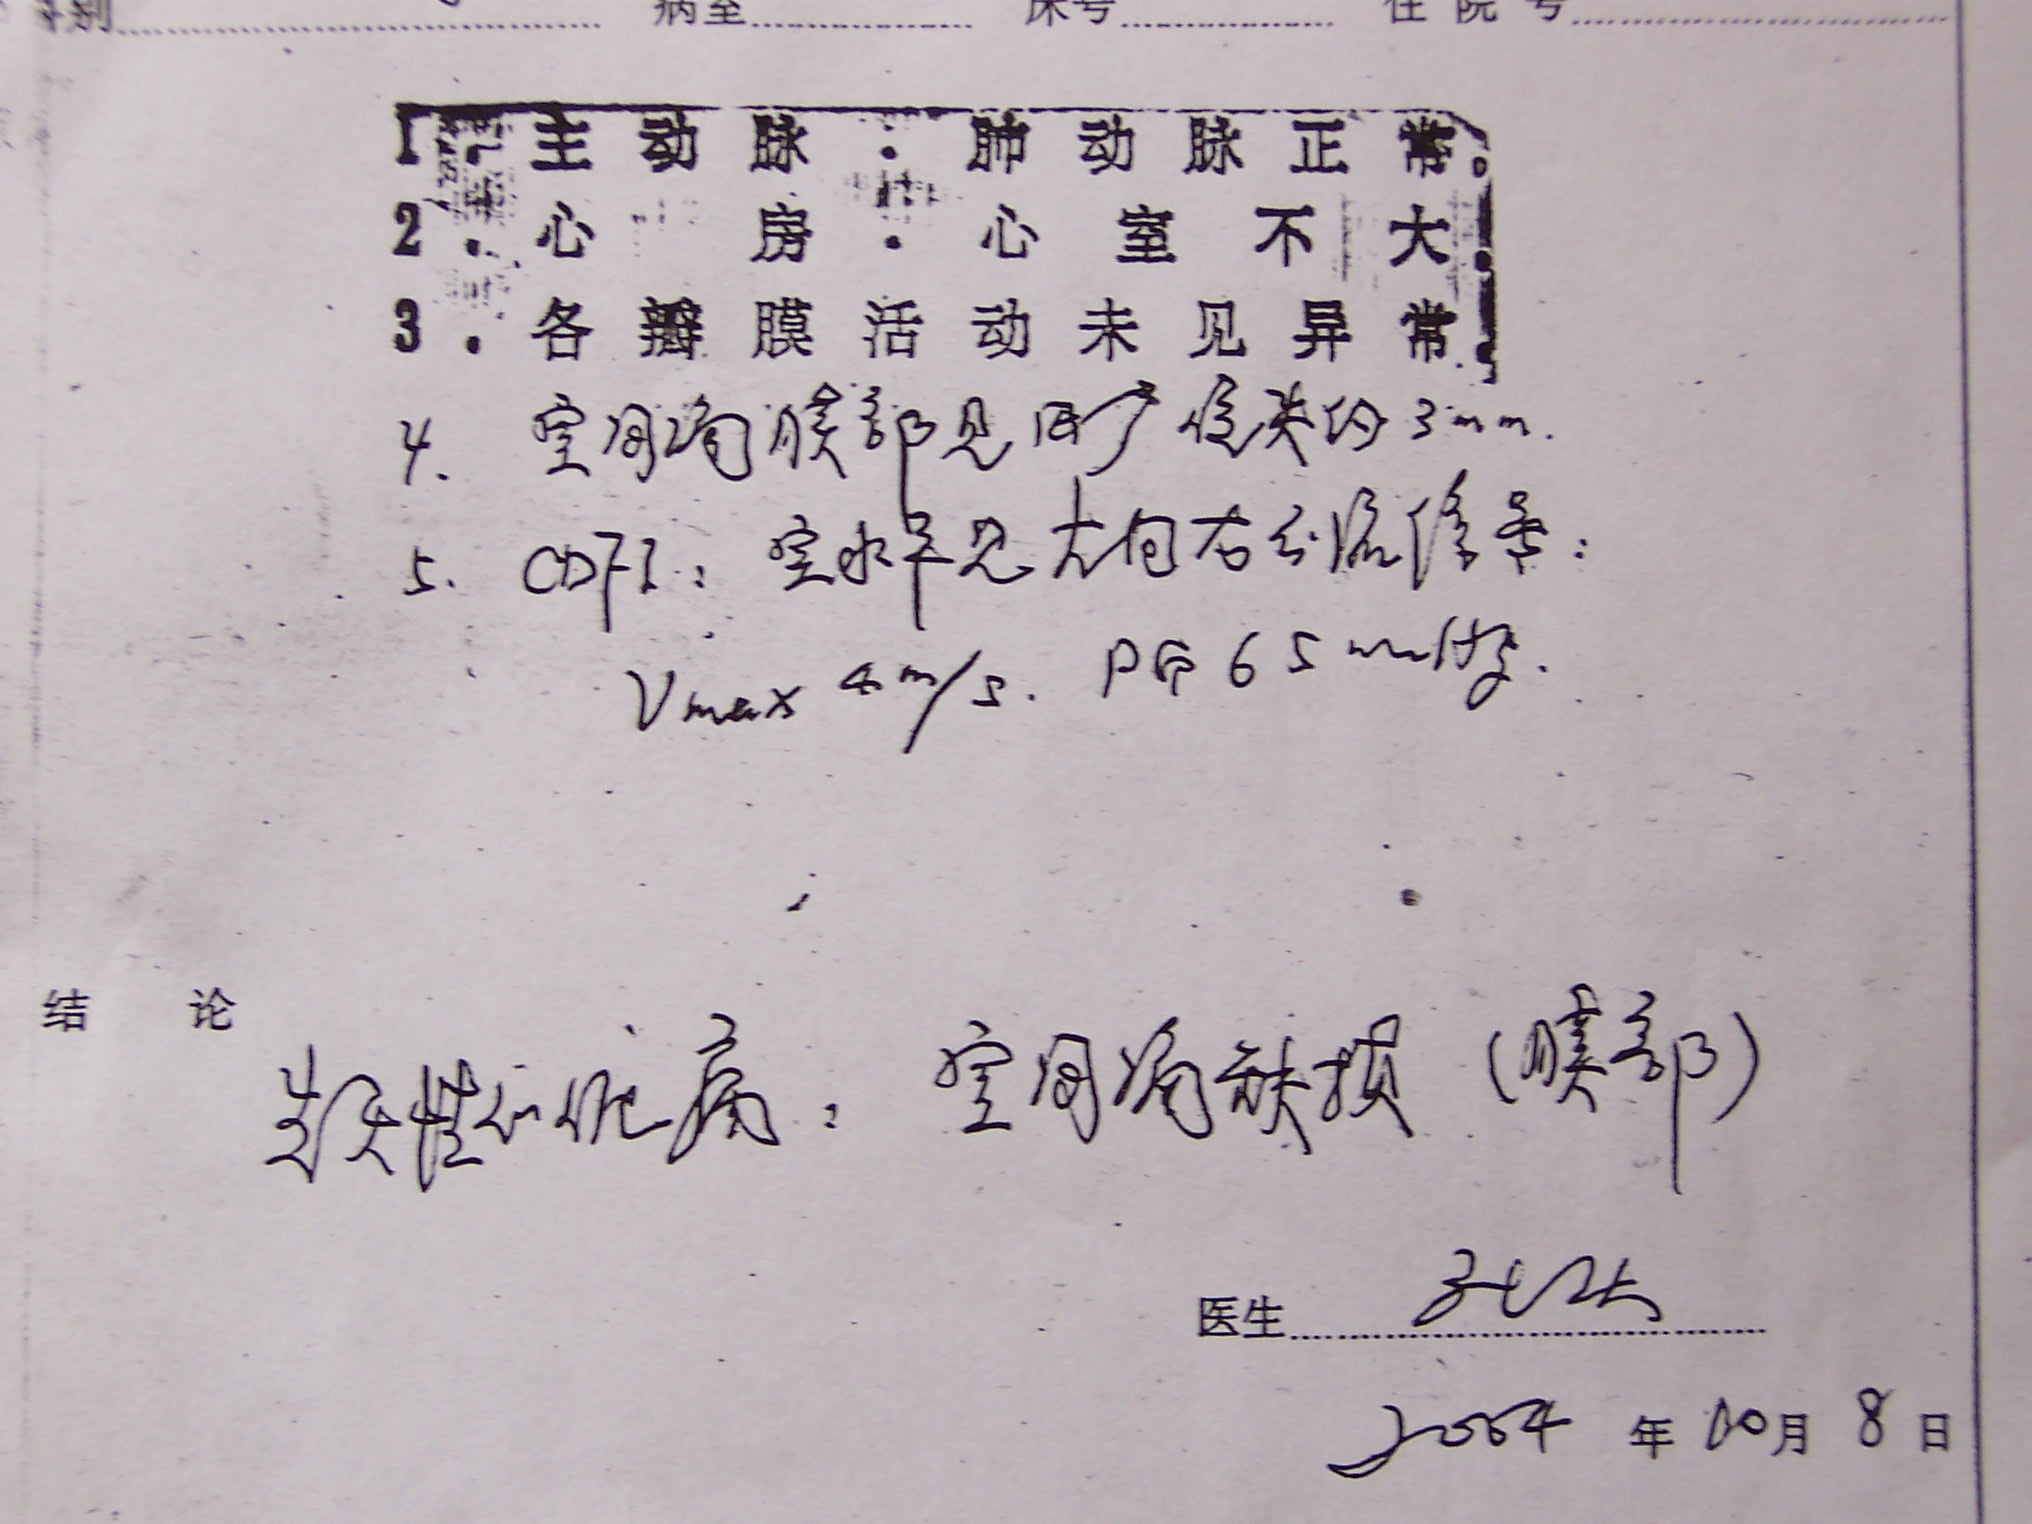 科别 病室 床号 住院号
1. 主动脉.肺动脉正常.
2. 心房.心室不大.
3. 各瓣膜活动未见异常.
4. 室间隔膜部见回声缺失约3mm.
5. CDFI: 室水平见左向右分流信号:
Vmax 4m/s. PG 65mmHg.
结论
先天性心脏病: 室间隔缺损(膜部)
医生
2004年10月8日